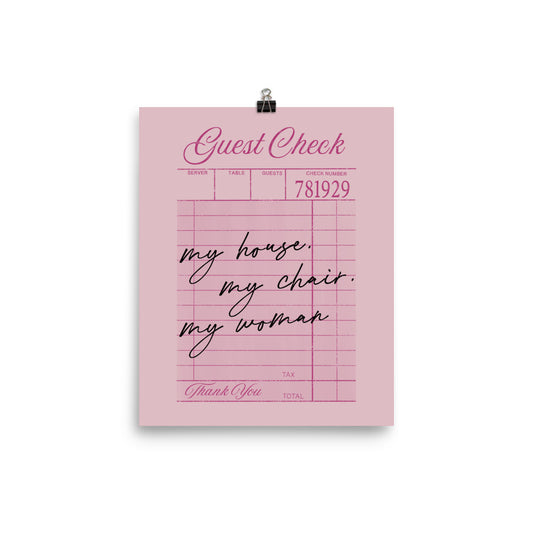 Guest Check
SERVER TABLE GUESTS CHECK NUMBER
781929
my house.
my chair.
my woman
TAX
Thank You TOTAL